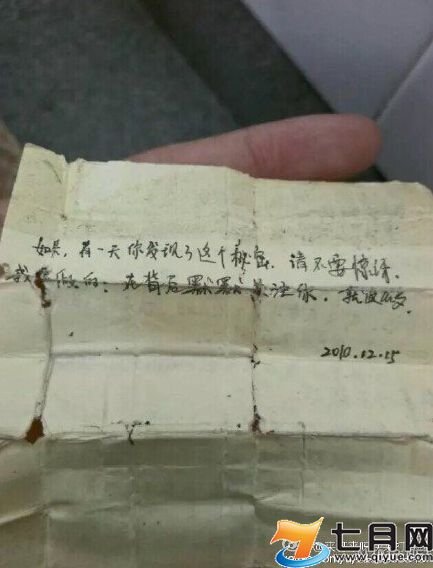 如果，有一天你发现了这个秘密，请不要惊讶。
我会做的：在背后默默关注你，就没公交
2010.12.15
七月网
www.qiyue.com